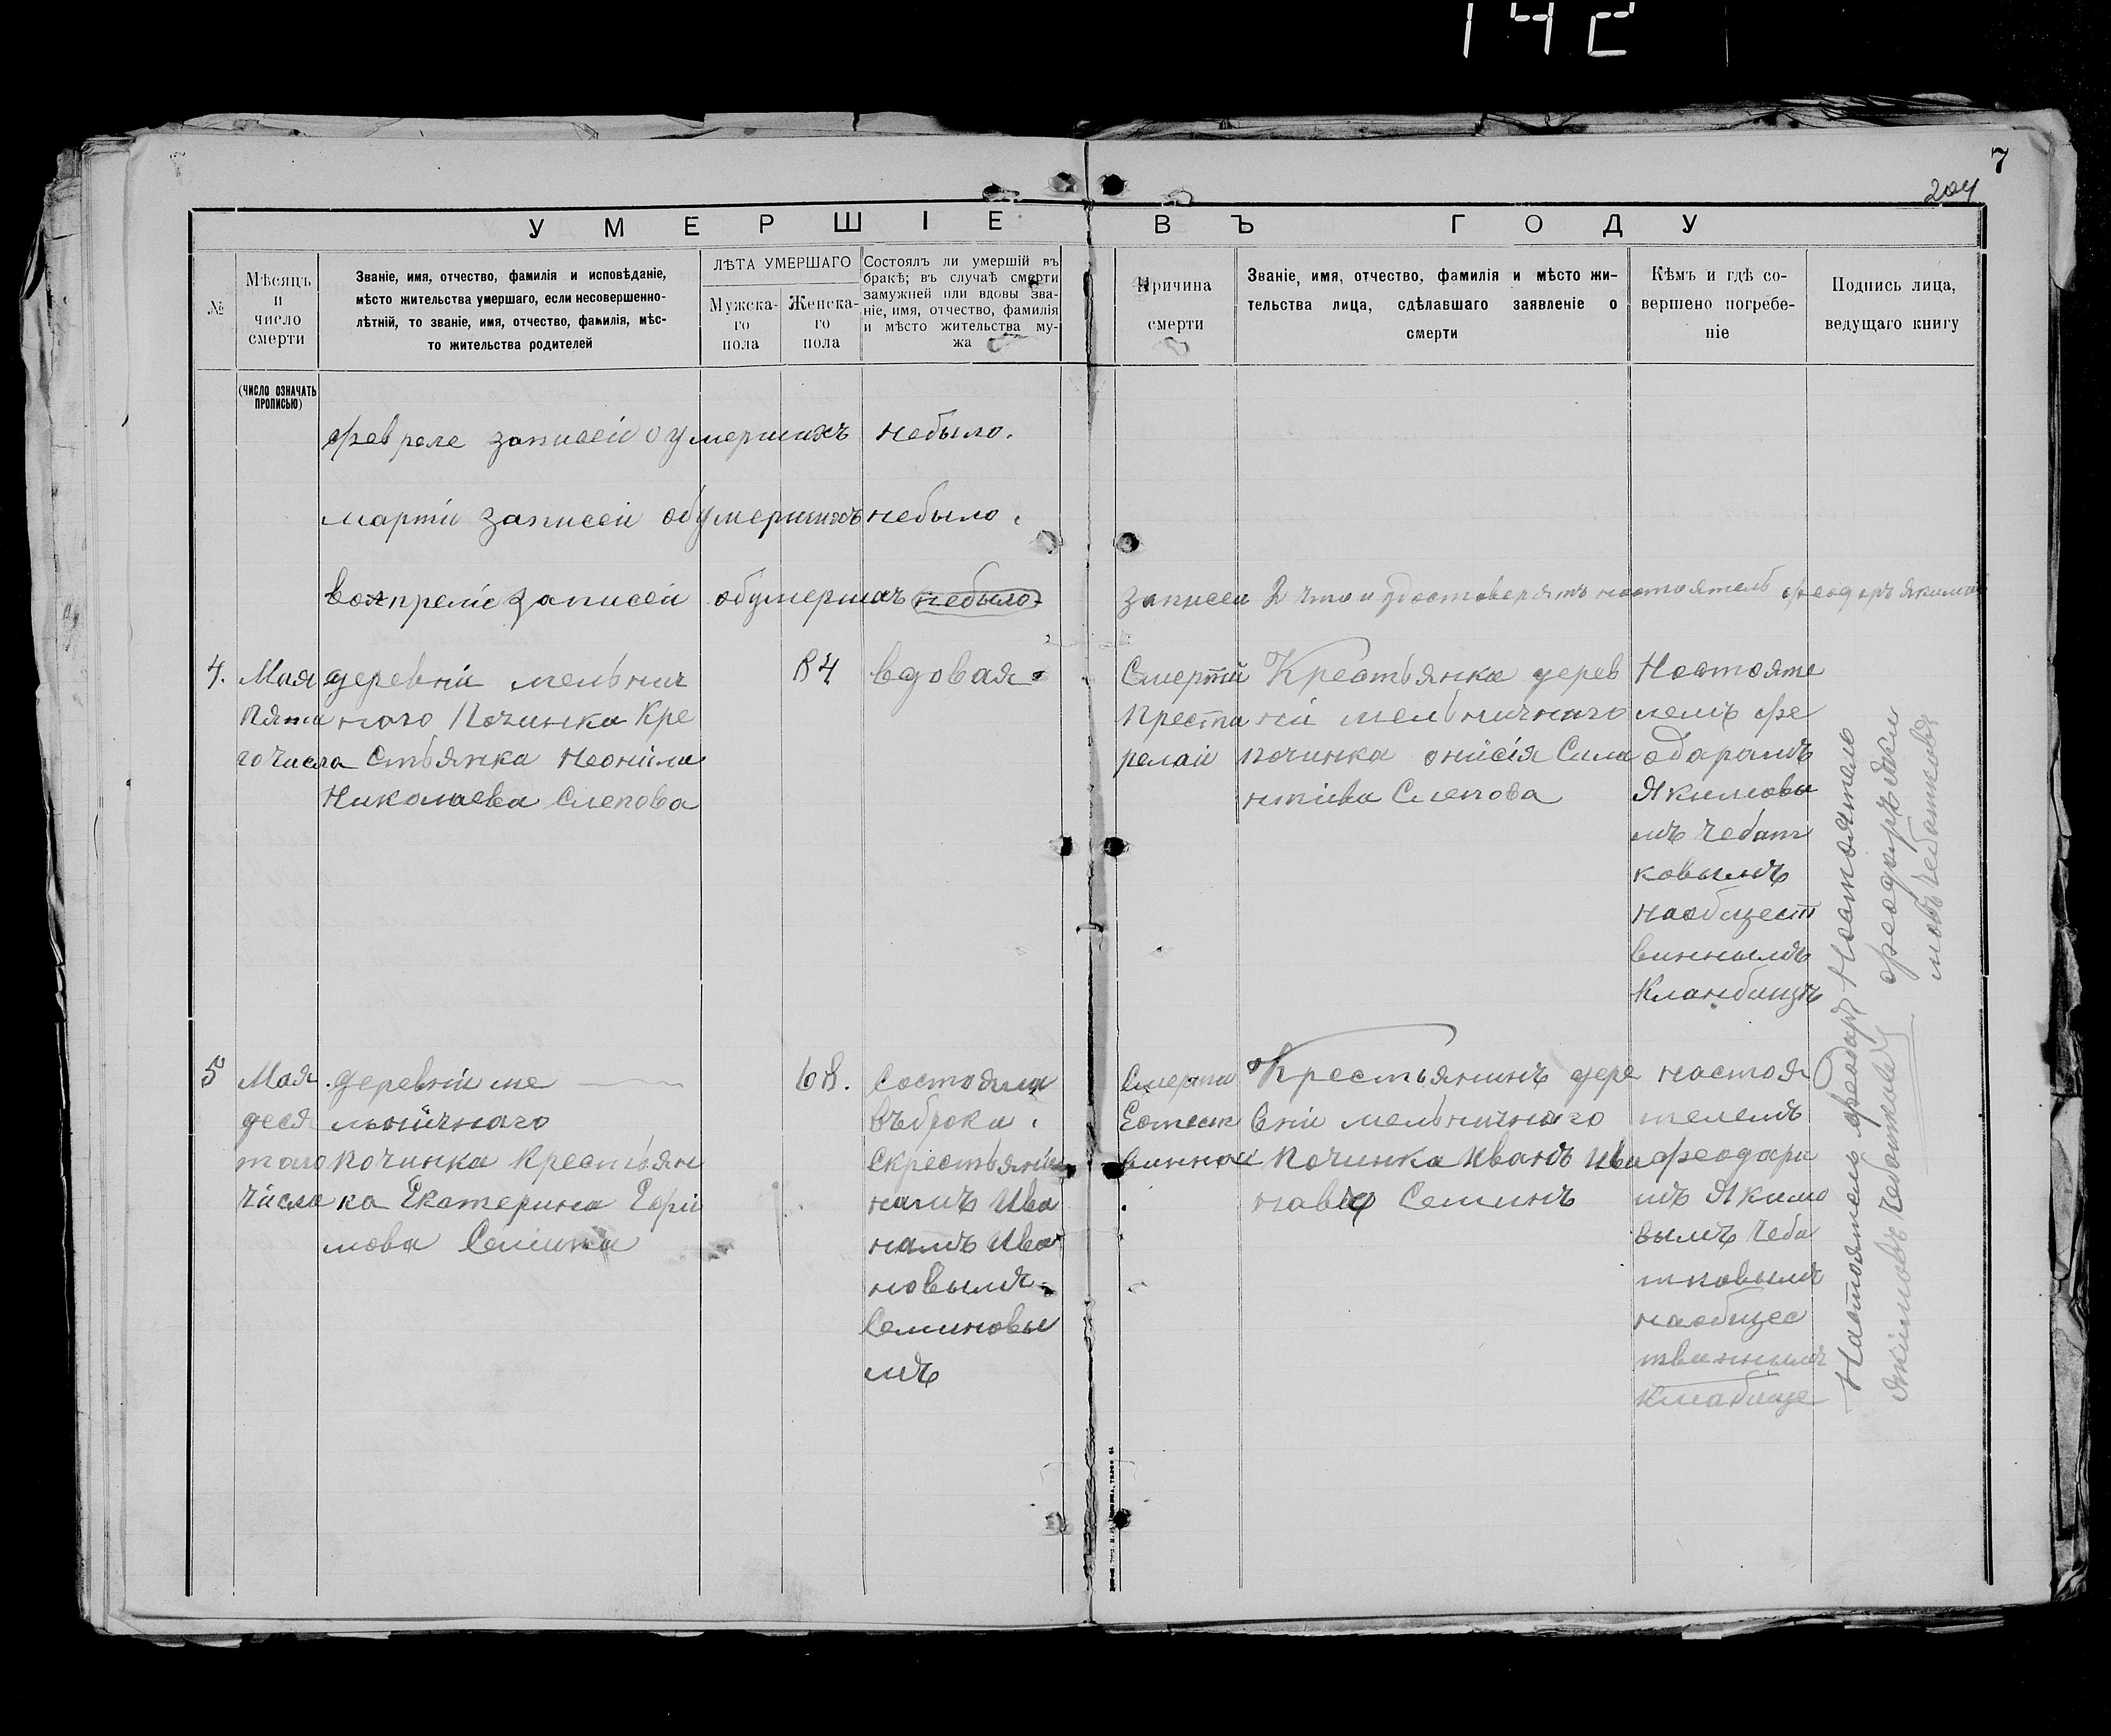 142
7
204
УМЕРШІЕ ВЪ ГОДУ
№
Мѣсяцъ
и
число
смерти
Званіе, имя, отчество, фамилія и исповѣданіе,
мѣсто жительства умершаго, если несовершенно-
лѣтній, то званіе, имя, отчество, фамилія, мѣс-
то жительства родителей
ЛѢТА УМЕРШАГО
Мужска-
го
пола
Женска-
го
пола
Состоялъ ли умершій въ
бракѣ; въ случаѣ смерти
замужней или вдовы зва-
ніе, имя, отчество, фамилія
и мѣсто жительства му-
жа
Причина
смерти
Званіе, имя, отчество, фамилія и мѣсто жи-
тельства лица, сдѣлавшаго заявленіе о
смерти
Кѣмъ и гдѣ со-
вершено погребе-
ніе
Подпись лица,
ведущаго книгу
(ЧИСЛО ОЗНАЧАТЬ
ПРОПИСЬЮ)
феврале записеи о умершихъ небыло.
марти записеи обумершихъ небыло.
вопрелie записеи обумершихъ небыло
записеи 2 что и удостоверяетъ настоятель феодоръ якимов
4.
Мая
Пята
го числа
деревнiи мельнич
ного Починка Кре
стьянка Неонiла
Николаева Слепова
84
вдовая
Смертiй
преста
релаи
Крестьянка дерев
нiи мельничнаго
починка онiсiя Сила
нтiева Слепова
Настояте
лемъ фе
одарамъ
Якимовы
мъ Чебат
ковымъ
наобщест
виннымъ
Кланбищъ
Настоятель
феодоръ Яки
мовъ Чебатковъ
5
Мая
деся
таго
числа
деревнiи ме
льнiчнаго
починка Крестьян
ка Екатерина Ефи
мова Семина
68.
Состояла
въброки.
скрестьянiи
намъ Ива
намъ Ива
новымъ
Семиновы
мъ
Смерти
Естест
виннаи
Крестьянинъ дере
внiи мельничнаго
Починка Иванъ Ива
навъ Семинъ
настоя
телемъ
феодара
мъ Якимо
вымъ Чеба
тковымъ
наобщес
твиннымъ
Кладбище
Настоятель феодоръ
Якимовъ Чебатковъ